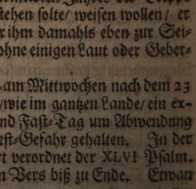 stehen solte/ weisen wollen/ er
r ihm damahls eben zur Sei-
ohne einigen Laut oder Geber-
am Mittwochen nach dem 23
/wie im gantzen Lande/ ein ex-
nd Fast-Tag um Abwendung
est-Gefahr gehalten. In der
t verordnet der XLVI Psalm.
n Vers biß zu Ende. Etwan